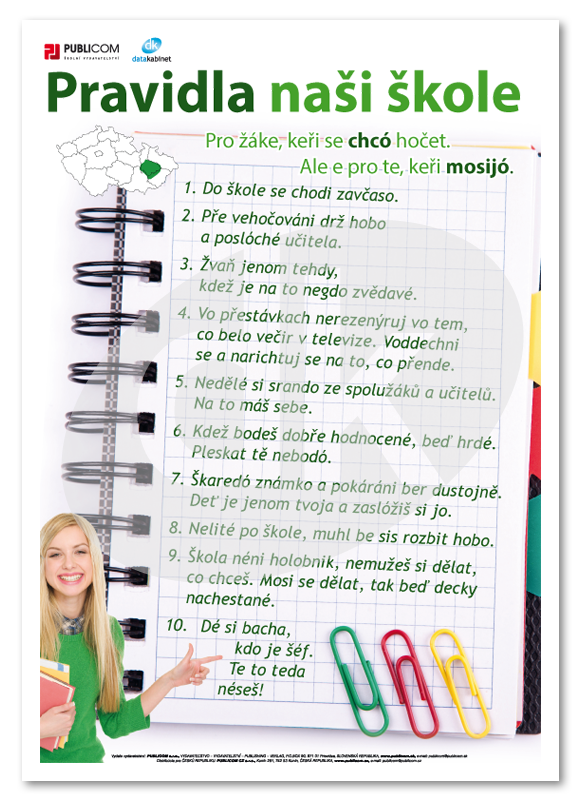 PUBLICOM
ŠKOLNÍ VYDAVATELSTVÍ
dk
datakabinet
Pravidla naši škole
Pro žáke, keři se chcó hočet.
Ale e pro te, keři mosijó.
1. Do škole se chodi zavčaso.
2. Pře vehočováni drž hobo
a poslóché učitela.
3. Žvaň jenom tehdy,
kdež je na to negdo zvědavé.
4. Vo přestávkach nerezenýruj vo tem,
co belo večir v televize. Voddechni
se a narichtuj se na to, co přende.
5. Nedělé si srando ze spolužáků a učitelů.
Na to máš sebe.
6. Kdež bodeš dobře hodnocené, beď hrdé.
Pleskat tě nebodó.
7. Škaredó známko a pokáráni ber dustojně.
Deť je jenom tvoja a zaslóžiš si jo.
8. Nelité po škole, muhl be sis rozbit hobo.
9. Škola néni holobnik, nemužeš si dělat,
co chceš. Mosi se dělat, tak beď decky
nachestané.
10. Dé si bacha,
kdo je šéf.
Te to teda
néseš!